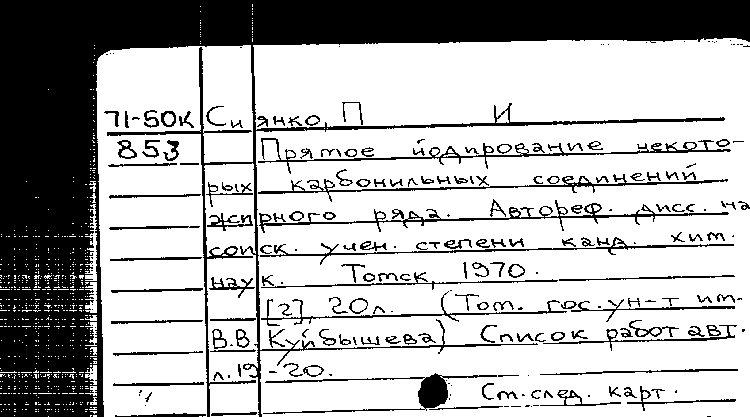 71-50к Сиянко, П И
853 Прямое йодирование некото-
рых карбонильных соединений
жирного ряда. Автореф. дисс. на
соиск. учен. степени канд. хим.
наук. Томск, 1970.
[2], 20л. (Том. гос. ун-т им.
В.В. Куйбышева) Список работ авт.
л.19-20.
См. след. карт.